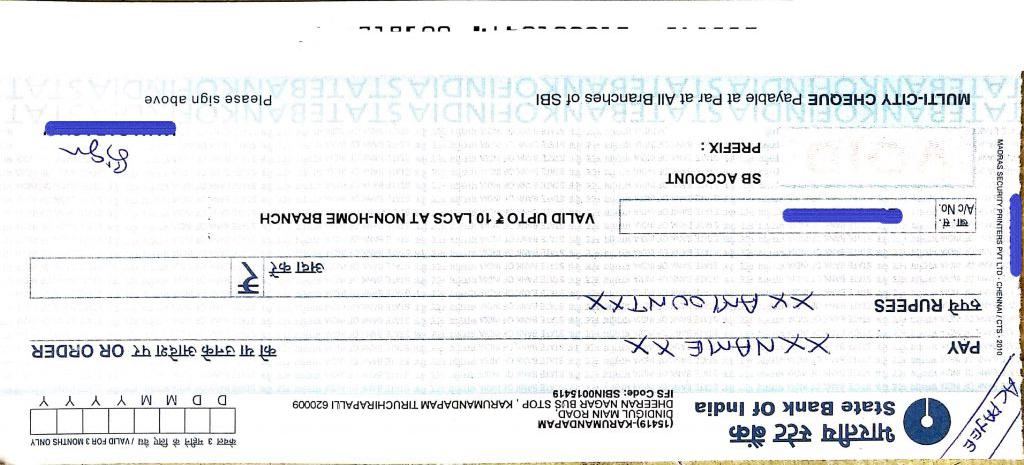 A/C PAYEE
भारतीय स्टेट बैंक
State Bank Of India
(15419)-KARUMANDAPAM
DINDIGUL MAIN ROAD
DHEERAN NAGAR BUS STOP , KARUMANDAPAM TIRUCHIRAPALLI 620009
IFS Code: SBIN0015419
केवल 3 महीने के लिए वैध / VALID FOR 3 MONTHS ONLY
D D M M Y Y Y Y
PAY XX NAME XX को या उनके आदेश पर OR ORDER
रुपये RUPEES XX AMOUNT XX
अदा करें ₹
खा. सं.
A/c No.
VALID UPTO ₹ 10 LACS AT NON-HOME BRANCH
SB ACCOUNT
PREFIX :
Sign
MULTI-CITY CHEQUE Payable at Par at All Branches of SBI
Please sign above
MADRAS SECURITY PRINTERS PVT LTD - CHENNAI / CTS - 2010
STATEBANKOFINDIASTATEBANKOFINDIASTAT